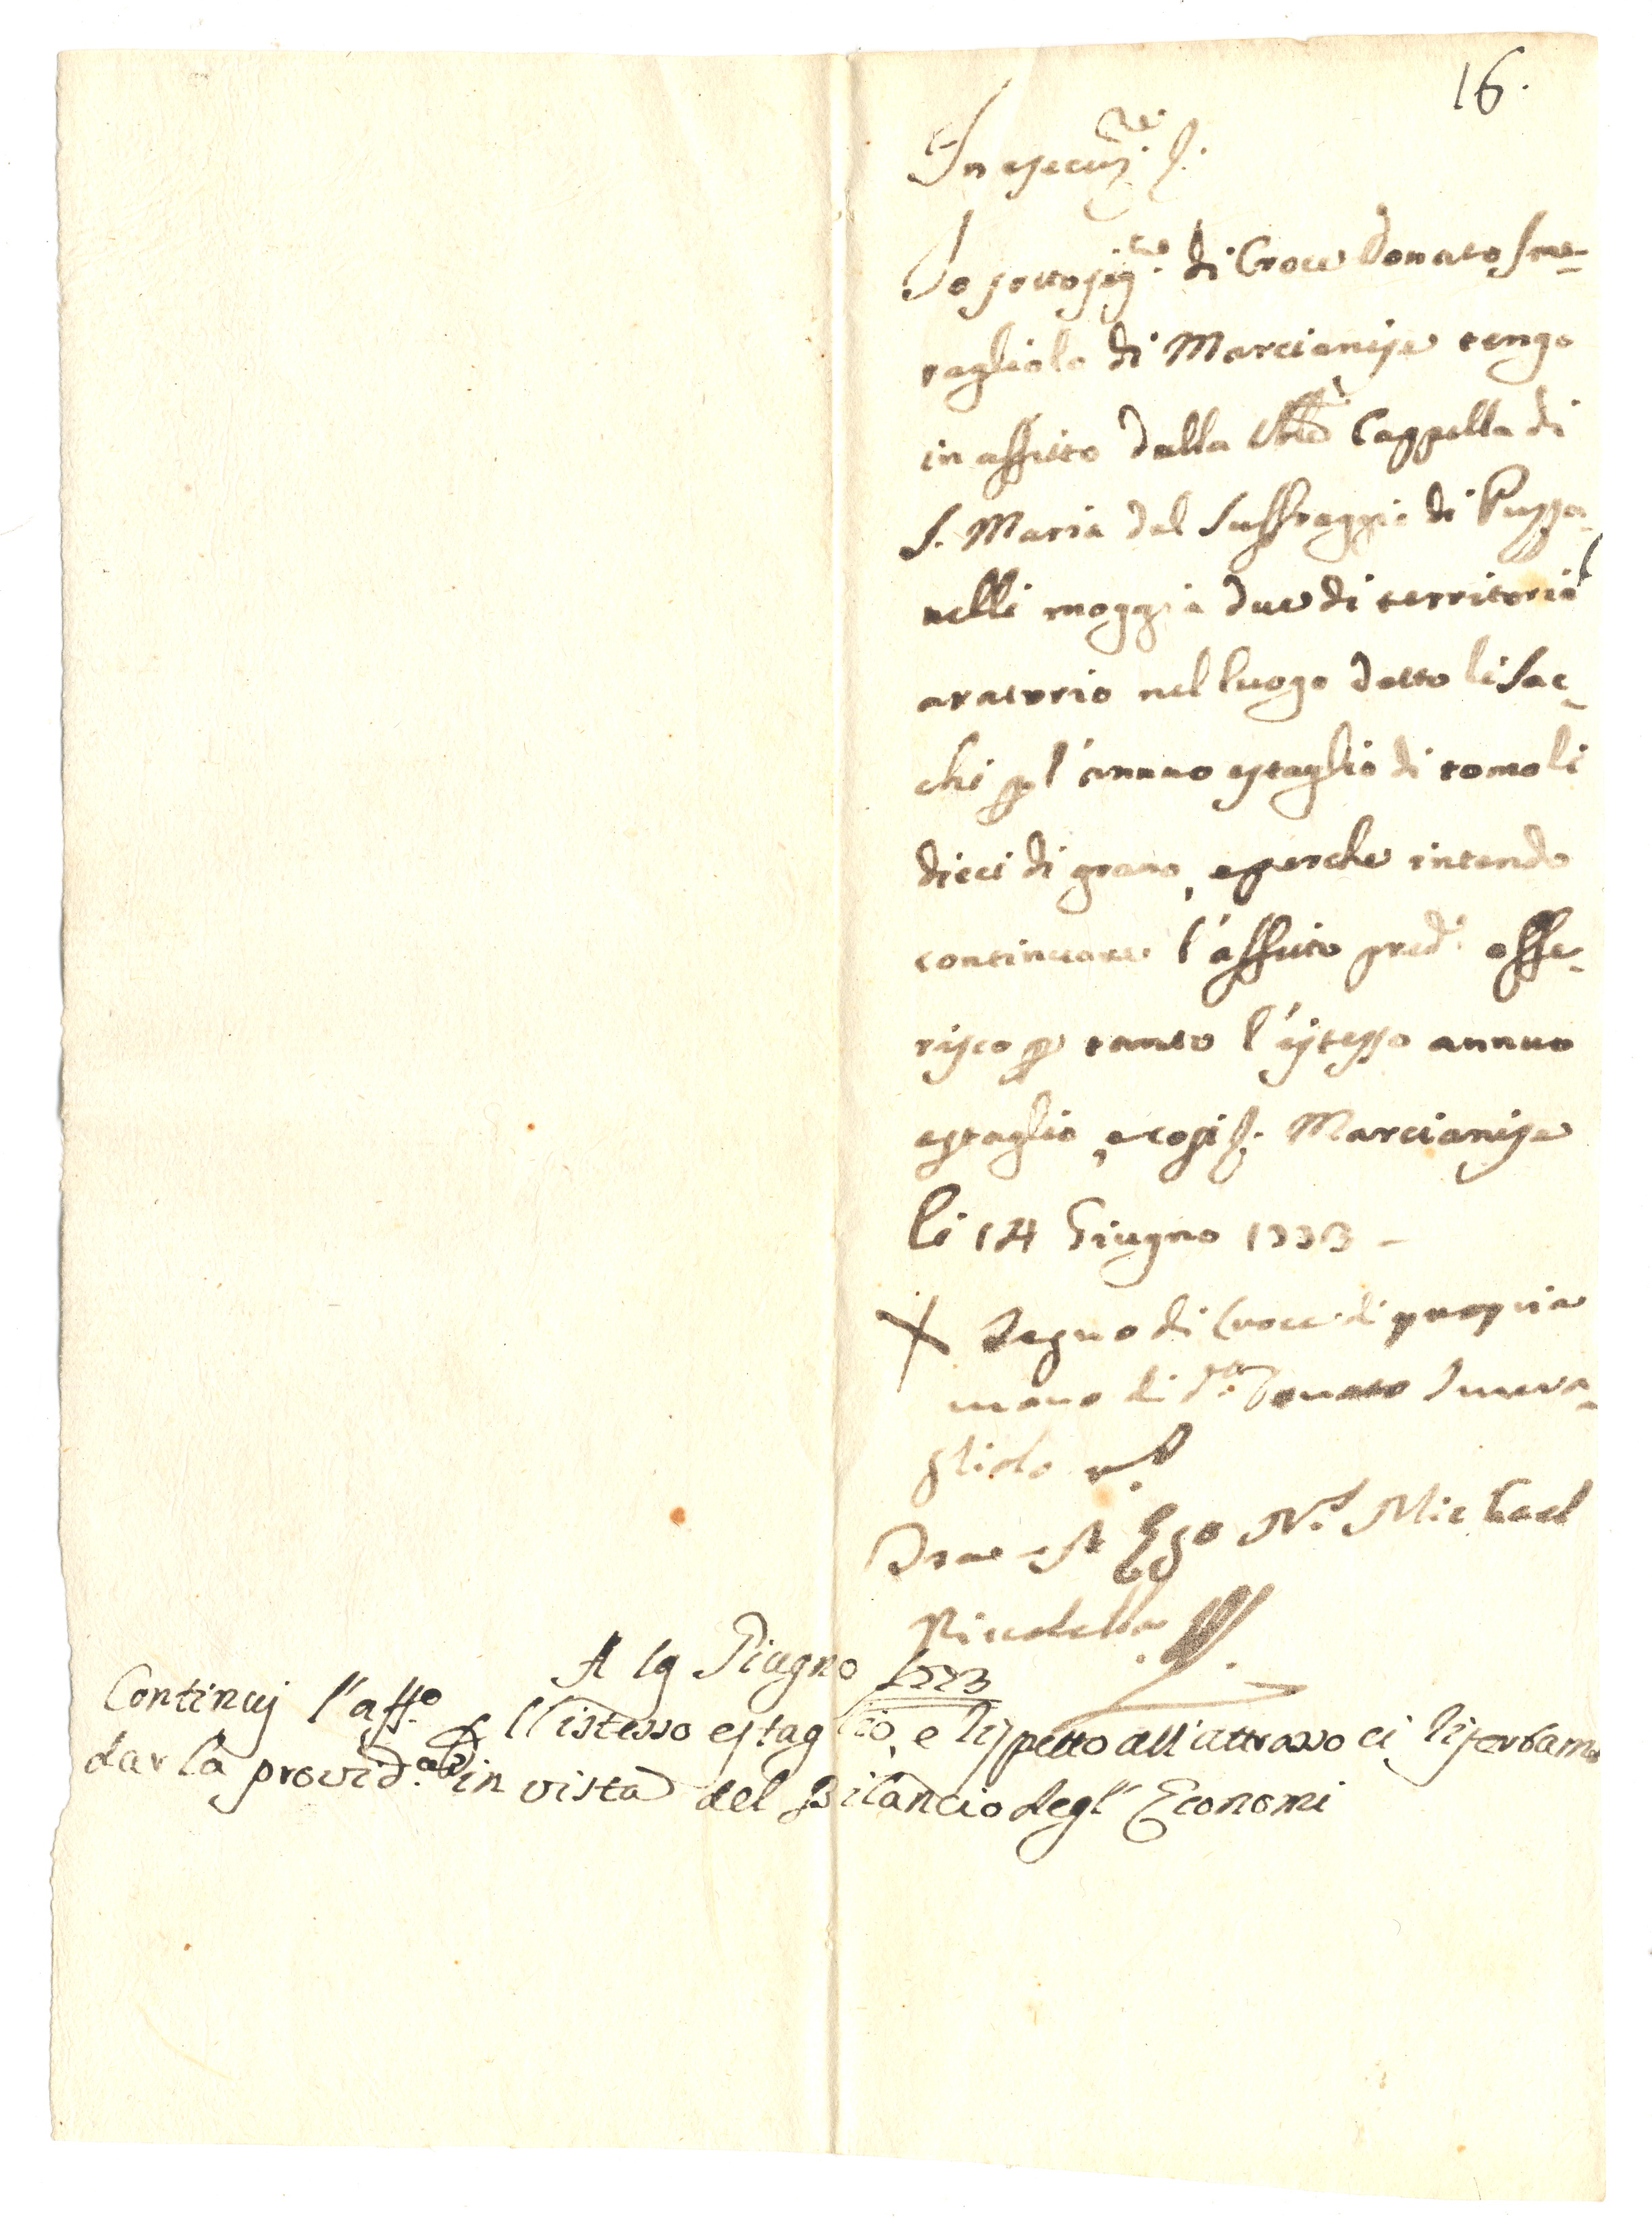 16.
In esecuz.ne &.
Io sottosig.to di Croce Donato Sme-
ragliolo di Marcianise tengo
in affitto dalla Ven.le Cappella di
S. Maria del Suffraggio di Puzza-
nelli moggia due di territorio
aratorio nel luogo detto li Sac-
chi p l'annuo estaglio di tomoli
dieci di grano, e perche intendo
continuare l'affitto pred.o offe-
risco p tanto l'istesso annuo
estaglio, e cosi &. Marcianise
li 14 Giugno 1773 -
+ Segno di Croce di propria
mano di d.o Donato Smera-
gliolo
Ita est Ego N.r Michael
A 19 Giugno 1773
Continuj l'aff.o p l'istesso estaglio, e rispetto all'attrasso ci riserbamo
dar la provid.a in vista del Bilancio degl'Economi